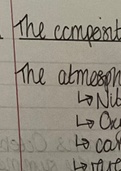 The composit
The atmosph
↳ Nit
↳ Ox
↳ car